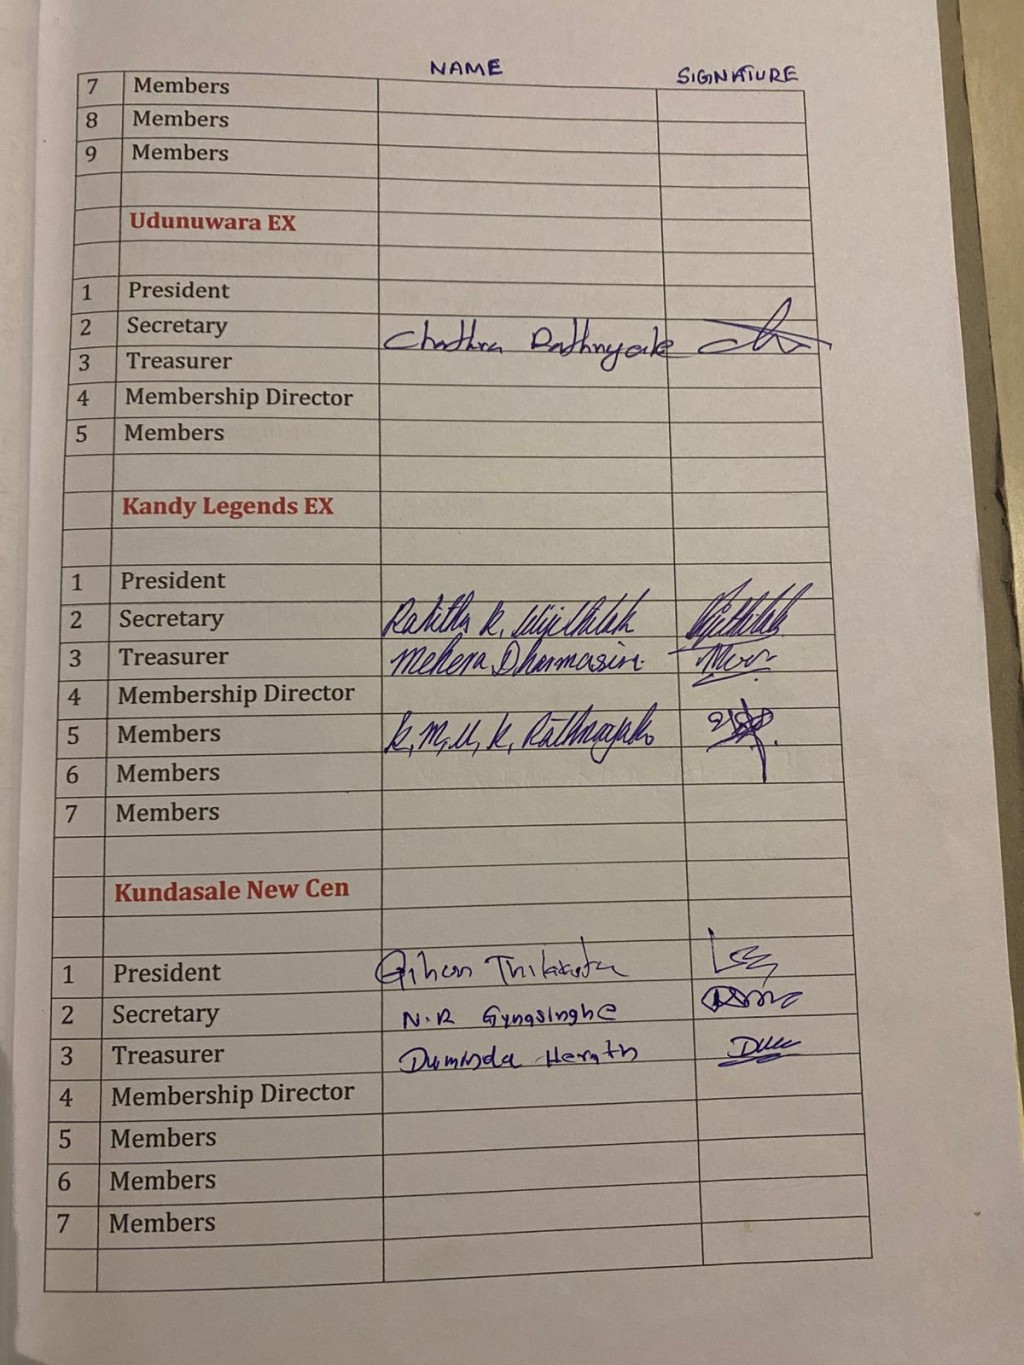 NAME SIGNATURE
7 Members
8 Members
9 Members
Udunuwara EX
1 President
2 Secretary Chathra Rathnyake
3 Treasurer
4 Membership Director
5 Members
Kandy Legends EX
1 President
2 Secretary Rakitha K. Wijethilak
3 Treasurer Mehera Dharmasiri
4 Membership Director
5 Members K.M.U.K. Rathnayake
6 Members
7 Members
Kundasale New Cen
1 President Gihan Thilakratn
2 Secretary N.R Gynasinghe
3 Treasurer Duminda Herath
4 Membership Director
5 Members
6 Members
7 Members